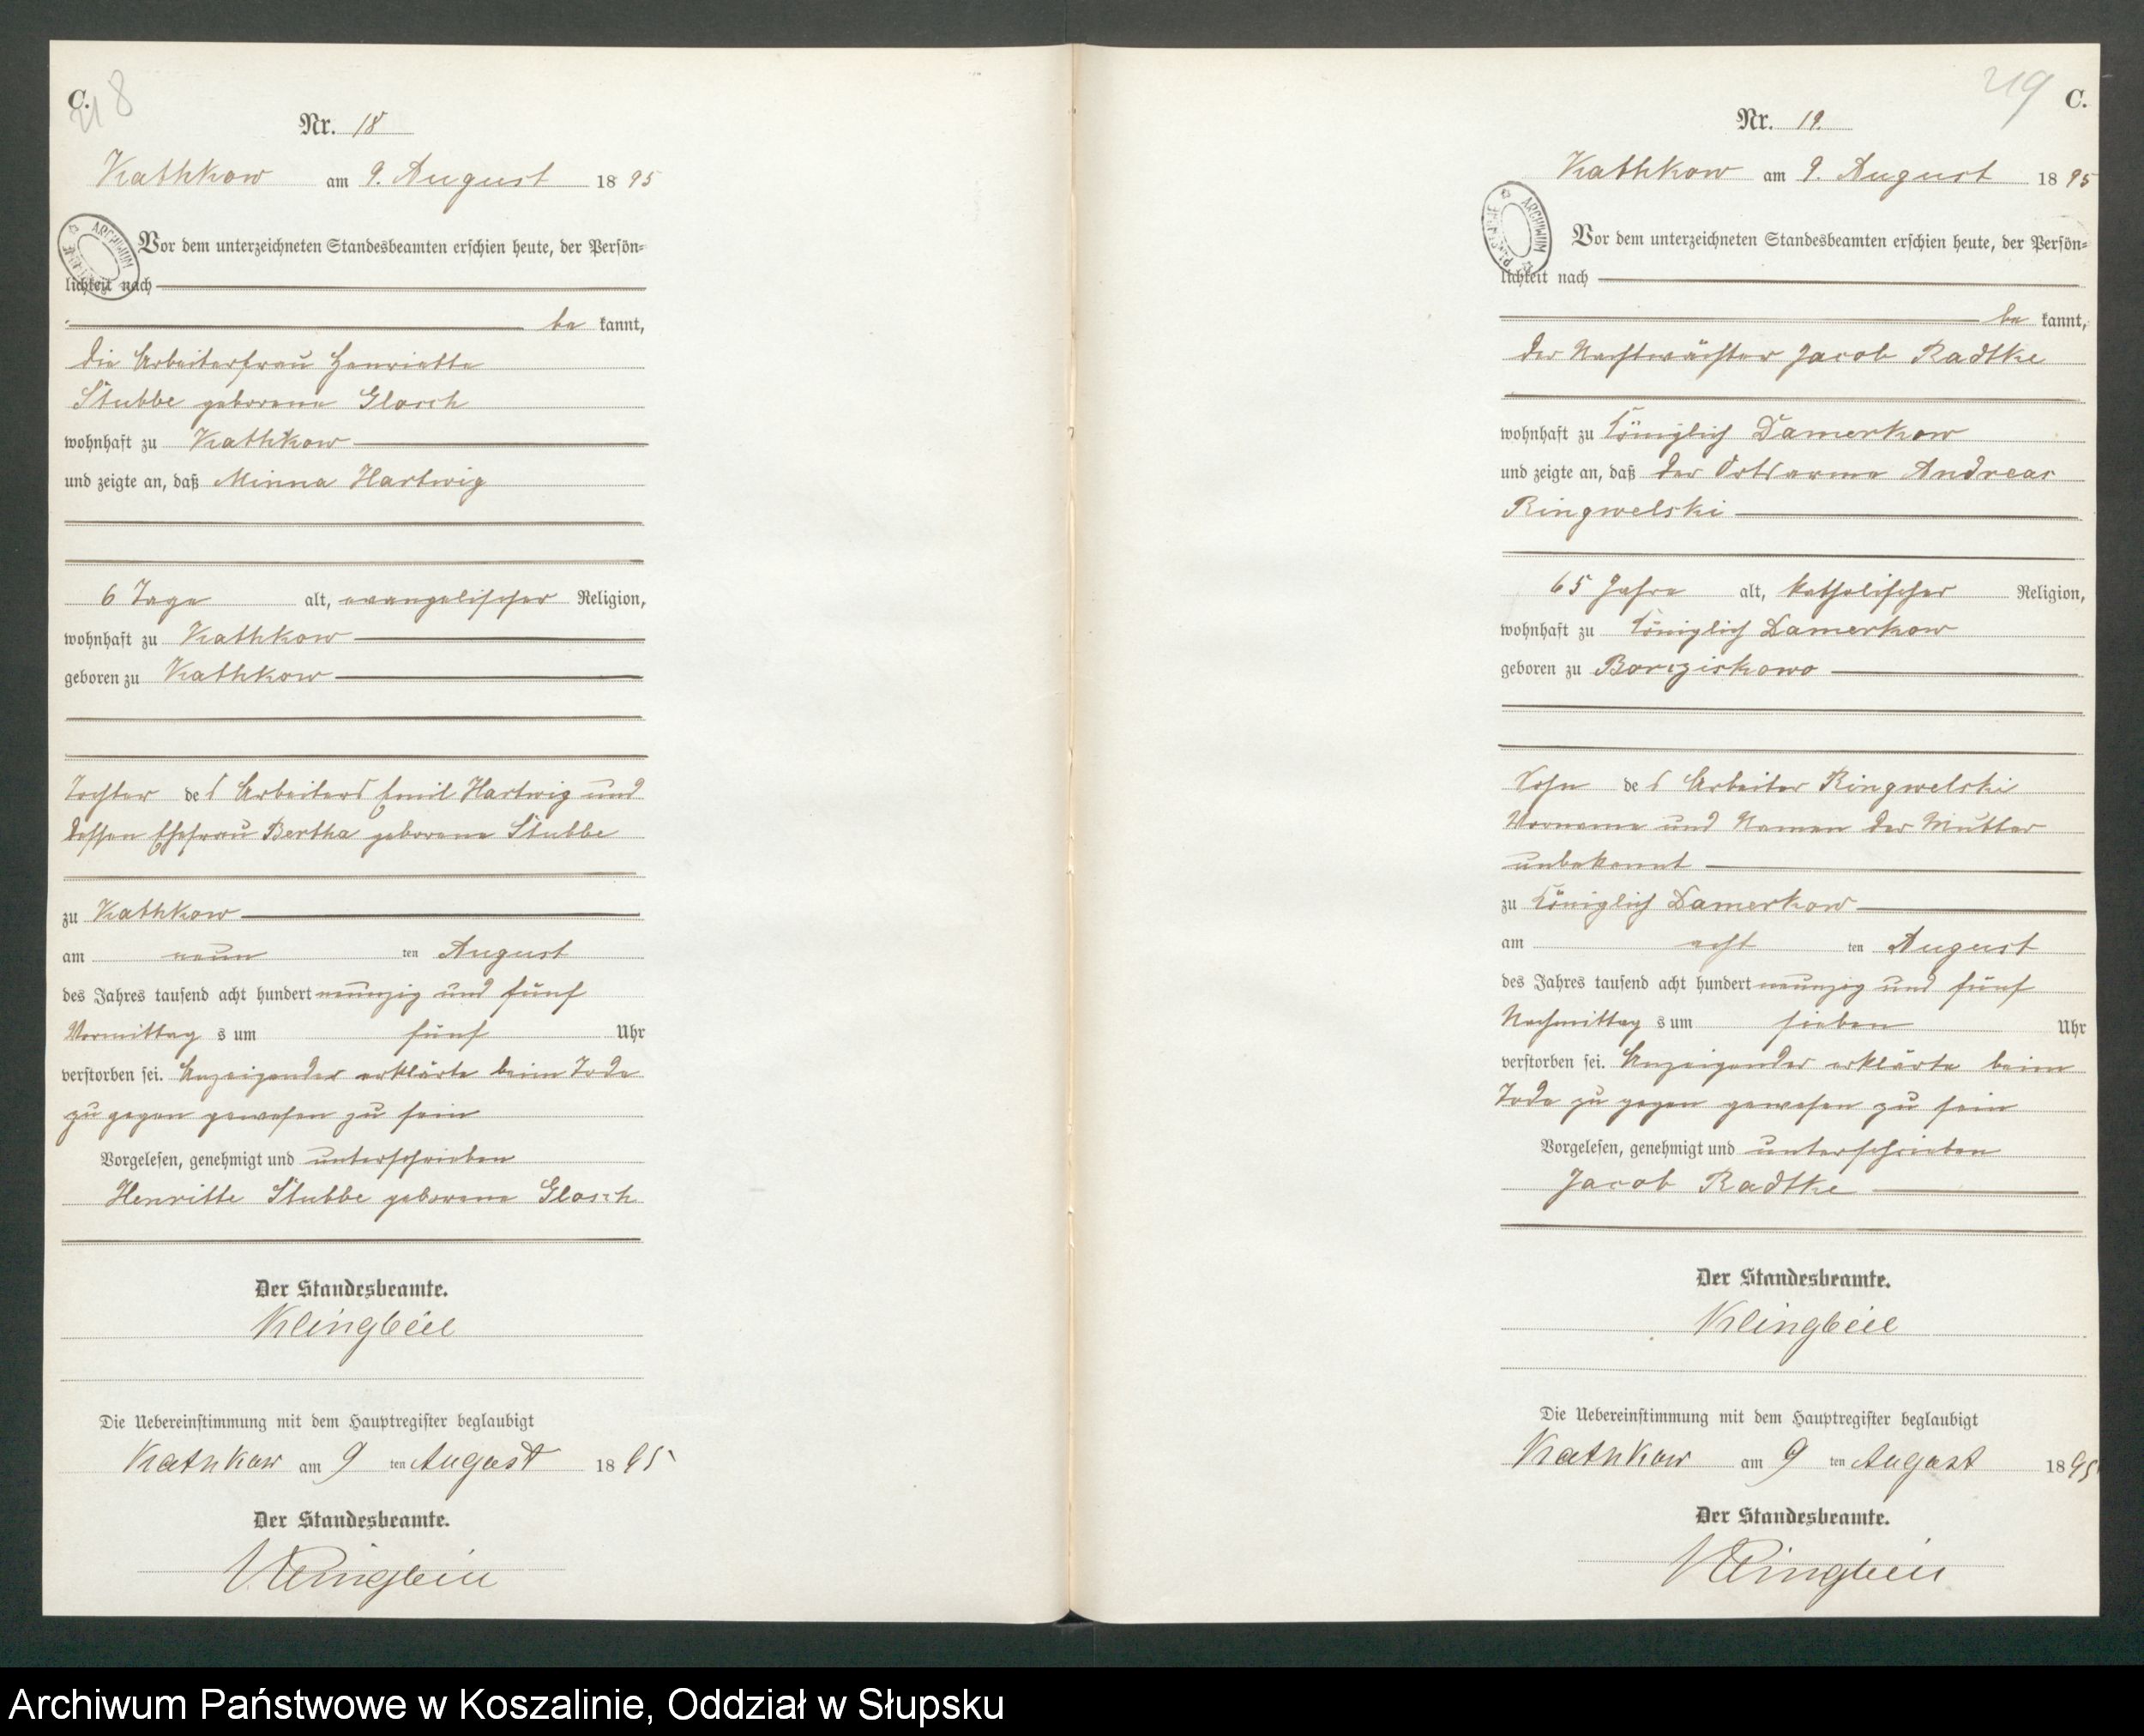 C.
218
Nr. 18
Kathkow am 9. August 1895
Vor dem unterzeichneten Standesbeamten erschien heute, der Persön-
lichkeit nach
be kannt,
die Arbeiterfrau Henriette
Stubbe geborene Glosch
wohnhaft zu Kathkow
und zeigte an, daß Minna Hartwig
6 Tage alt, evangelischer Religion,
wohnhaft zu Kathkow
geboren zu Kathkow
Tochter des Arbeiters Emil Hartwig und
dessen Ehefrau Bertha geborene Stubbe
zu Kathkow
am neun ten August
des Jahres tausend acht hundert neunzig und fünf
Vormittag s um fünf Uhr
verstorben sei. Anzeigender erklärte beim Tode
zu gegen gewesen zu sein
Vorgelesen, genehmigt und unterschrieben
Henritte Stubbe geborene Glosch
Der Standesbeamte.
Klingbeil
Die Uebereinstimmung mit dem Hauptregister beglaubigt
Kathkow am 9 ten August 1895
Der Standesbeamte.
Klingbeil
219
C.
Nr. 19.
Kathkow am 9. August 1895
ARCHIWUM
Vor dem unterzeichneten Standesbeamten erschien heute, der Persön-
lichkeit nach
be kannt,
der Nachtwächter Jacob Radtke
wohnhaft zu Königlich Damerkow
und zeigte an, daß der Ortsarme Andreas
Ringwelski
65 Jahre alt, katholischer Religion,
wohnhaft zu Königlich Damerkow
geboren zu Borcziskowo
Sohn des Arbeiter Ringwelski
Vorname und Namen der Mutter
unbekannt
zu Königlich Damerkow
am acht ten August
des Jahres tausend acht hundert neunzig und fünf
Nachmittag s um sieben Uhr
verstorben sei. Anzeigender erklärte beim
Tode zu gegen gewesen zu sein
Vorgelesen, genehmigt und unterschrieben
Jacob Radtke
Der Standesbeamte.
Klingbeil
Die Uebereinstimmung mit dem Hauptregister beglaubigt
Kathkow am 9 ten August 1895
Der Standesbeamte.
Klingbeil
Archiwum Państwowe w Koszalinie, Oddział w Słupsku